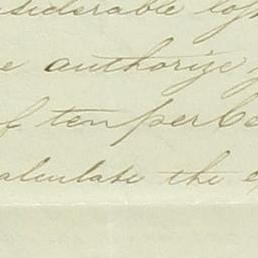 nsiderable los
e authorize y
of ten per Ce
alculate the e